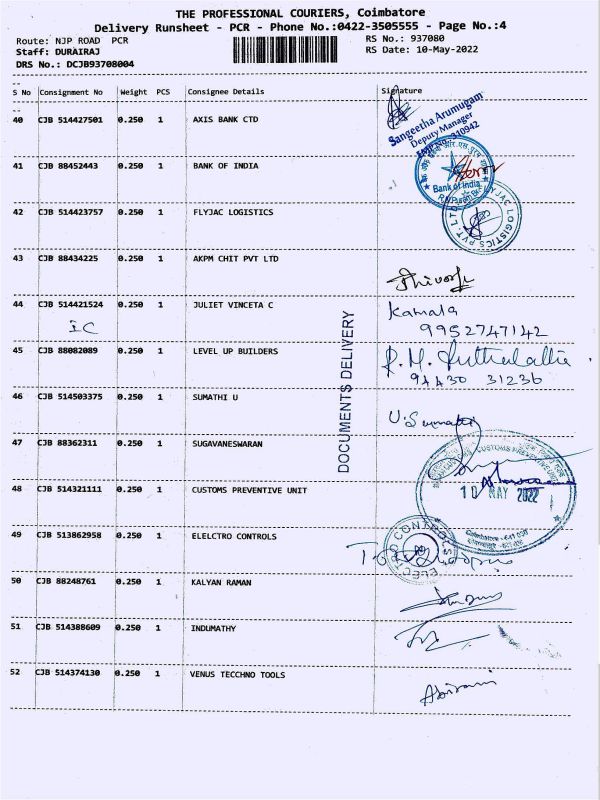 THE PROFESSIONAL COURIERS, Coimbatore
Delivery Runsheet - PCR - Phone No.:0422-3505555 - Page No.:4
Route: NJP ROAD PCR RS No.: 937080
Staff: DURAIRAJ RS Date: 10-May-2022
DRS No.: DCJB93708004
S No Consignment No Weight PCS Consignee Details Signature
40 CJB 514427501 0.250 1 AXIS BANK CTD
Sangeetha Arumugam
Deputy Manager
41 CJB 88452443 0.250 1 BANK OF INDIA
Bank of India
42 CJB 514423757 0.250 1 FLYJAC LOGISTICS
FLYJAC LOGISTICS PVT. LTD
43 CJB 88434225 0.250 1 AKPM CHIT PVT LTD
44 CJB 514421524 0.250 1 JULIET VINCETA C Kamala
IC 9952747142
45 CJB 88082089 0.250 1 LEVEL UP BUILDERS
94430 31236
DOCUMENTS DELIVERY
46 CJB 514503375 0.250 1 SUMATHI U U. Sumathi
47 CJB 88362311 0.250 1 SUGAVANESWARAN
48 CJB 514321111 0.250 1 CUSTOMS PREVENTIVE UNIT
CUSTOMS PREVENTIVE
10 MAY 2022
Coimbatore - 641 018
49 CJB 513862958 0.250 1 ELELCTRO CONTROLS
ELECTRO CONTROLS
50 CJB 88248761 0.250 1 KALYAN RAMAN
51 CJB 514388609 0.250 1 INDUMATHY
52 CJB 514374130 0.250 1 VENUS TECCHNO TOOLS